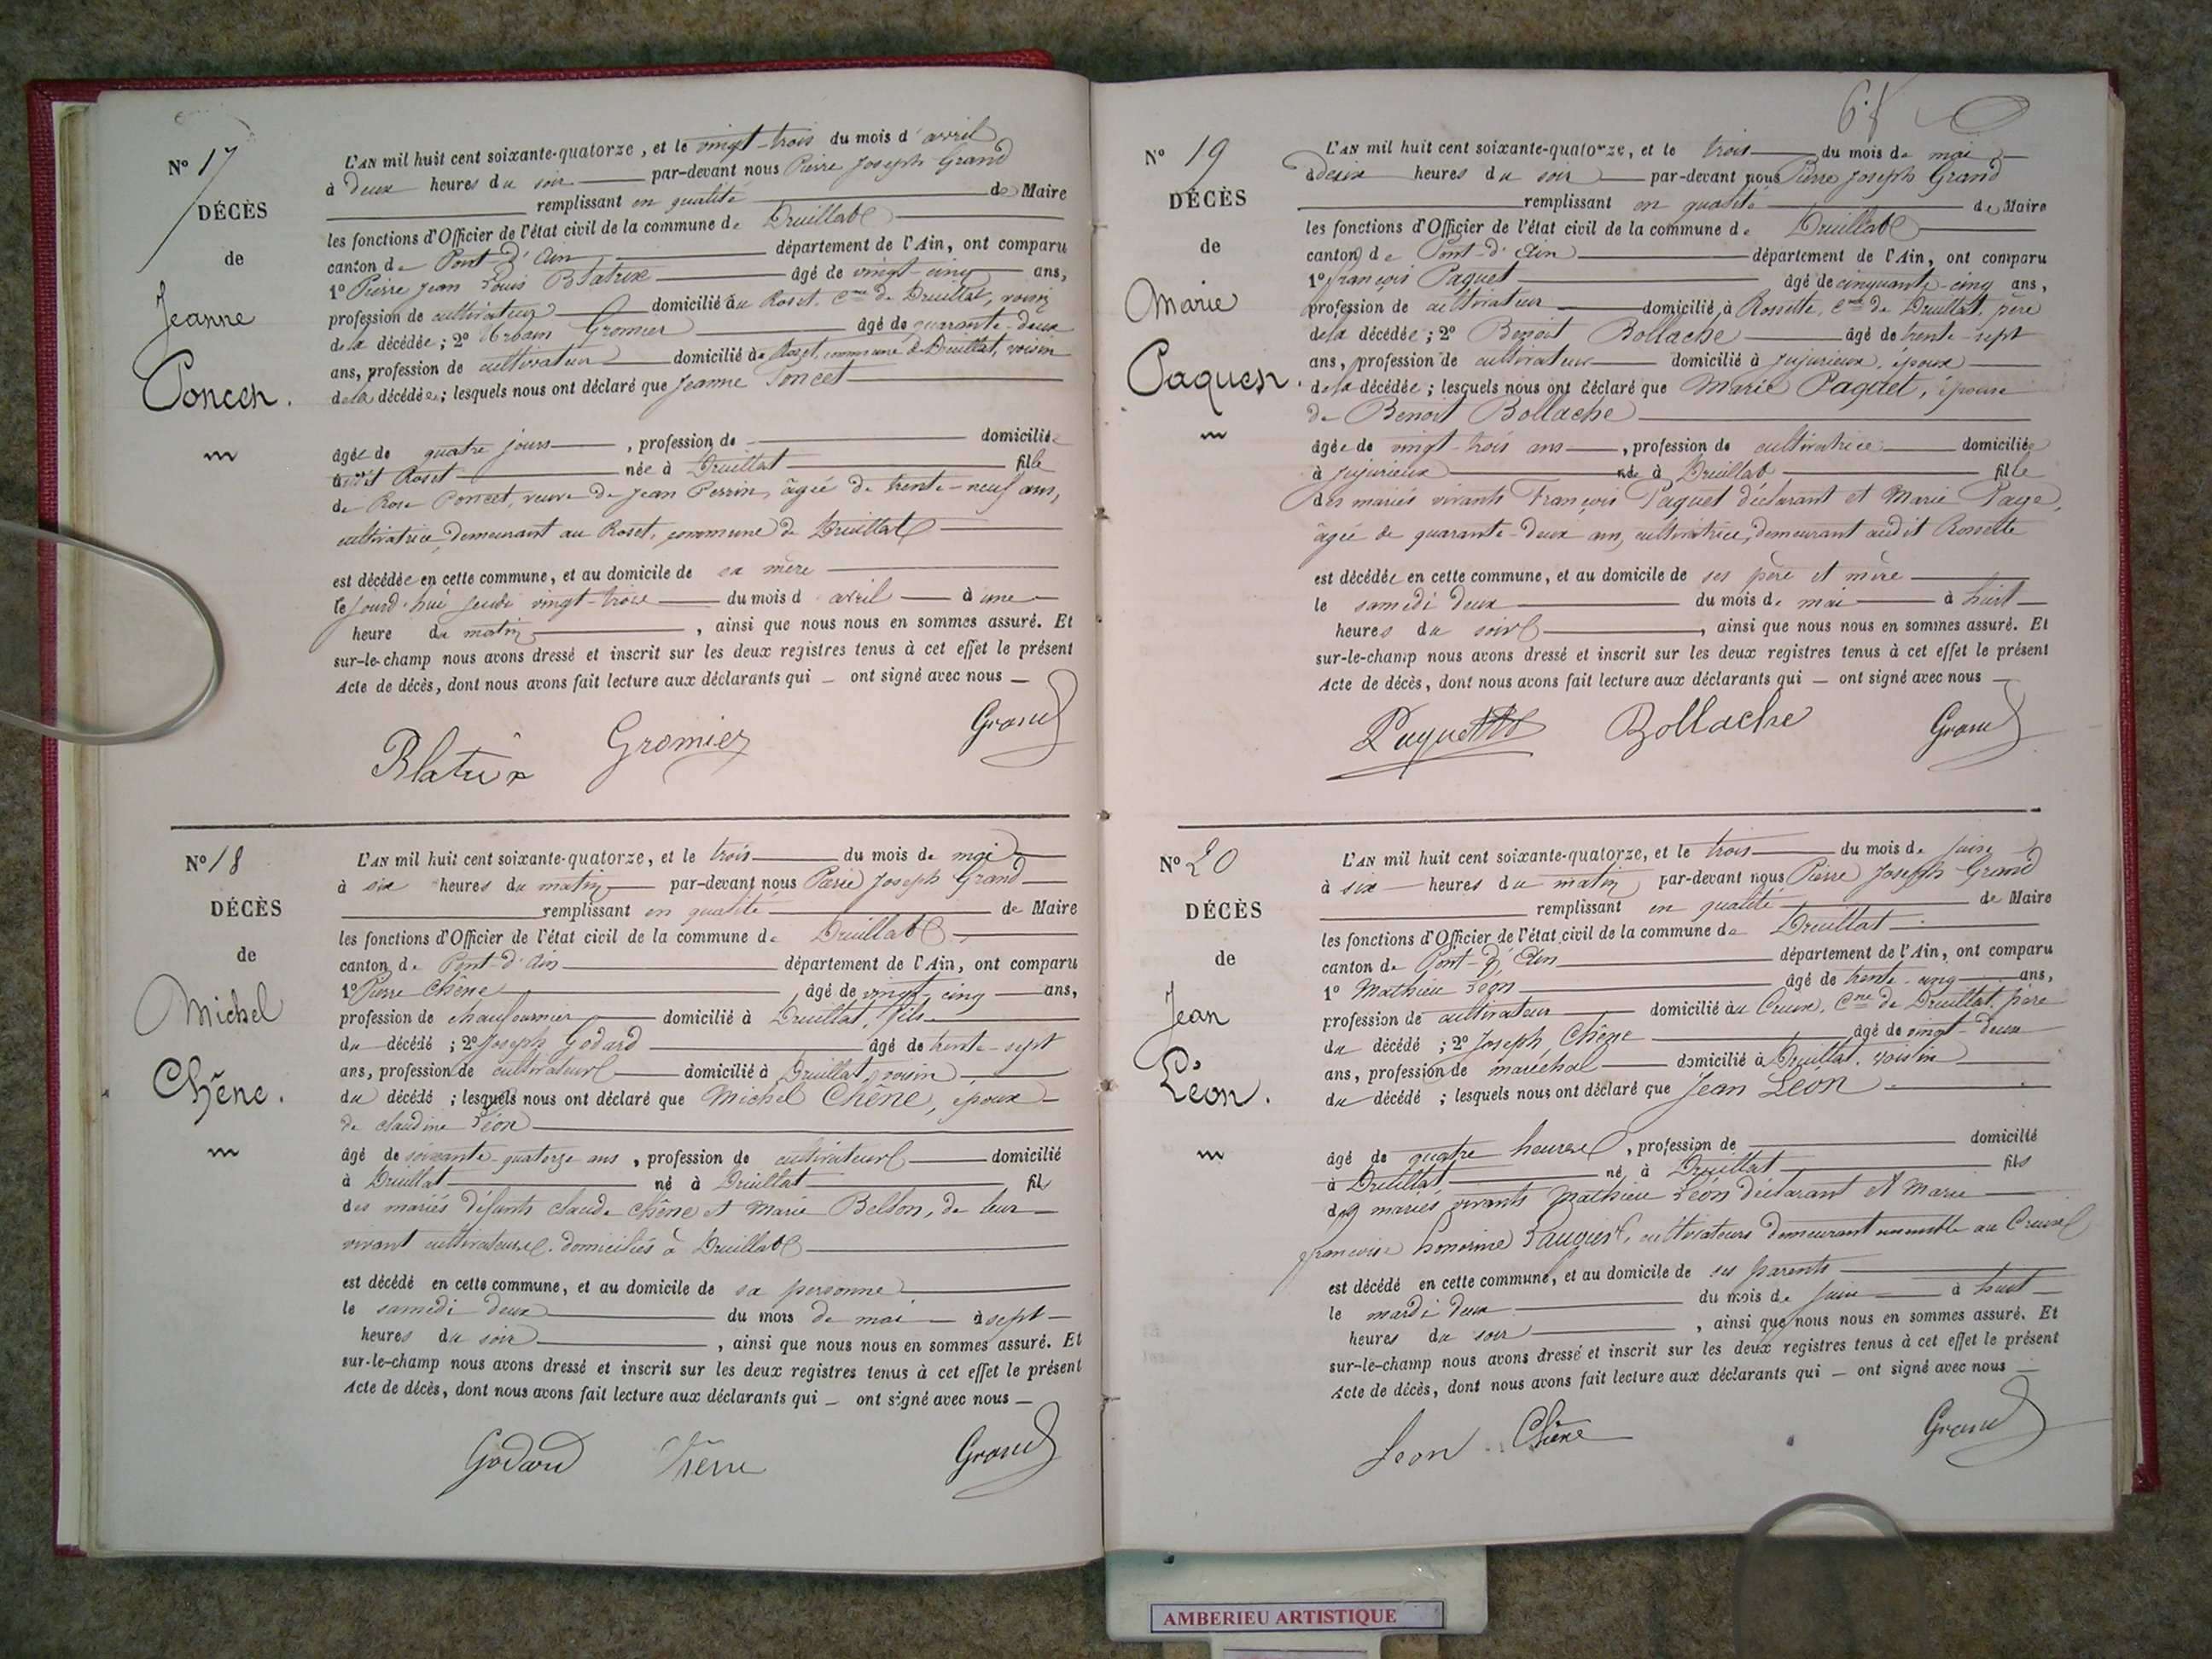 N° 17
DÉCÈS
de
Jeanne
Poncet.
L'AN mil huit cent soixante-quatorze, et le vingt-trois du mois d'avril
à deux heures du soir par-devant nous Pierre Joseph Grand
remplissant en qualité de Maire
les fonctions d'Officier de l'état civil de la commune de Druillat
canton de Pont-d'Ain département de l'Ain, ont comparu
1° Pierre Jean Louis Blatrix âgé de vingt-cinq ans,
profession de cultivateur domicilié au Roset, Cne de Druillat, voisin
de la décédée; 2° Urbain Gromier âgé de quarante-deux
ans, profession de cultivateur domicilié au Roset, commune de Druillat, voisin
de la décédée; lesquels nous ont déclaré que Jeanne Poncet
âgée de quatre jours, profession de domiciliée
audit Roset née à Druillat fille
de Rose Poncet, veuve de Jean Perrin, âgée de trente-neuf ans,
cultivatrice, demeurant au Roset, commune de Druillat
est décédée en cette commune, et au domicile de sa mère
le jourd'hui jeudi vingt-trois du mois d'avril à une
heure du matin, ainsi que nous nous en sommes assuré. Et
sur-le-champ nous avons dressé et inscrit sur les deux registres tenus à cet effet le présent
Acte de décès, dont nous avons fait lecture aux déclarants qui ont signé avec nous
Blatrix Gromier Grand
N° 18
DÉCÈS
de
Michel
Chêne.
L'AN mil huit cent soixante-quatorze, et le trois du mois de mai
à six heures du matin par-devant nous Pierre Joseph Grand
remplissant en qualité de Maire
les fonctions d'Officier de l'état civil de la commune de Druillat
canton de Pont-d'Ain département de l'Ain, ont comparu
1° Pierre Chêne, âgé de vingt-cinq ans,
profession de chaufournier domicilié à Druillat, fils
du décédé; 2° Joseph Godard âgé de trente-sept
ans, profession de cultivateur domicilié à Druillat, voisin
du décédé; lesquels nous ont déclaré que Michel Chêne, époux
de Claudine Léon
âgé de soixante-quatorze ans, profession de cultivateur domicilié
à Druillat né à Druillat fils
des mariés défunts Claude Chêne et Marie Belson, de leur
vivant cultivateurs domiciliés à Druillat
est décédé en cette commune, et au domicile de sa personne
le samedi deux du mois de mai à sept
heures du soir, ainsi que nous nous en sommes assuré. Et
sur-le-champ nous avons dressé et inscrit sur les deux registres tenus à cet effet le présent
Acte de décès, dont nous avons fait lecture aux déclarants qui ont signé avec nous
Godard Chêne Grand
N° 19
DÉCÈS
de
Marie
Paquet.
L'AN mil huit cent soixante-quatorze, et le trois du mois de mai
à deux heures du soir par-devant nous Pierre Joseph Grand
remplissant en qualité de Maire
les fonctions d'Officier de l'état civil de la commune de Druillat
canton de Pont-d'Ain département de l'Ain, ont comparu
1° François Paquet âgé de cinquante-cinq ans,
profession de cultivateur domicilié à Rossette, Cne de Druillat, père
de la décédée; 2° Benoit Bollache âgé de trente-sept
ans, profession de cultivateur domicilié à Jujurieux, époux
de la décédée; lesquels nous ont déclaré que Marie Paquet, épouse
de Benoit Bollache
âgée de vingt-trois ans, profession de cultivatrice domiciliée
à Jujurieux née à Druillat fille
des mariés vivants François Paquet déclarant et Marie
âgée de quarante-deux ans, cultivatrice, demeurant audit Rossette
est décédée en cette commune, et au domicile de ses père et mère
le samedi deux du mois de mai à huit
heures du soir, ainsi que nous nous en sommes assuré. Et
sur-le-champ nous avons dressé et inscrit sur les deux registres tenus à cet effet le présent
Acte de décès, dont nous avons fait lecture aux déclarants qui ont signé avec nous
Paquet Bollache Grand
N° 20
DÉCÈS
de
Jean
Léon.
L'AN mil huit cent soixante-quatorze, et le trois du mois de juin
à six heures du matin par-devant nous Pierre Joseph Grand
remplissant en qualité de Maire
les fonctions d'Officier de l'état civil de la commune de Druillat
canton de Pont-d'Ain département de l'Ain, ont comparu
1° Mathieu Léon âgé de trente-cinq ans,
profession de cultivateur domicilié au Creux, Cne de Druillat, père
du décédé; 2° Joseph Chêne âgé de vingt-deux
ans, profession de maréchal domicilié à Druillat, voisin
du décédé; lesquels nous ont déclaré que Jean Léon
âgé de quatre heures, profession de domicilié
à Druillat né à Druillat fils
des mariés vivants Mathieu Léon déclarant et Marie
françoise honorine, cultivateurs demeurant ensemble au Creux
est décédé en cette commune, et au domicile de ses parents
le mardi deux du mois de juin à huit
heures du soir, ainsi que nous nous en sommes assuré. Et
sur-le-champ nous avons dressé et inscrit sur les deux registres tenus à cet effet le présent
Acte de décès, dont nous avons fait lecture aux déclarants qui ont signé avec nous
Leon Chêne Grand
AMBERIEU ARTISTIQUE